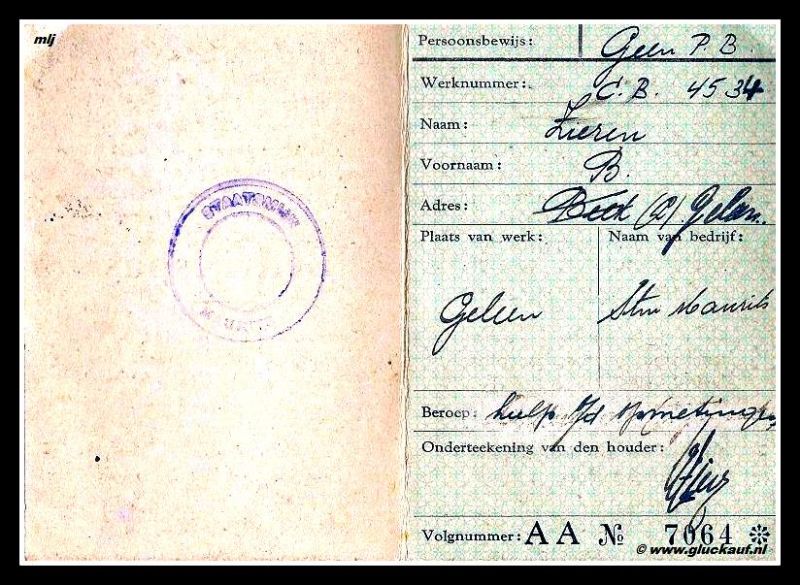 mlj
STAATSMIJN
Persoonsbewijs: Geen P.B.
Werknummer: C.B. 4534
Naam: Zieren
Voornaam: B.
Adres: Beek (L) Gelen.
Plaats van werk: Naam van bedrijf:
Geleen Stm Maurits
Beroep: hulp b/d opmetingen
Onderteekening van den houder:
Volgnummer: AA № 7064 ❊
© www.gluckauf.nl